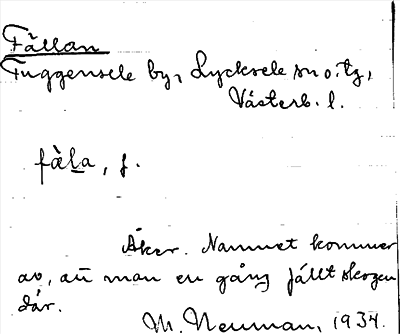 Fällan
Tuggensele by, Lycksele sn o. tg,
Västerb. l.
fäla, f.
Åker. Namnet kommer
av, att man en gång fällt skogen
där.
M. Neuman, 1934.